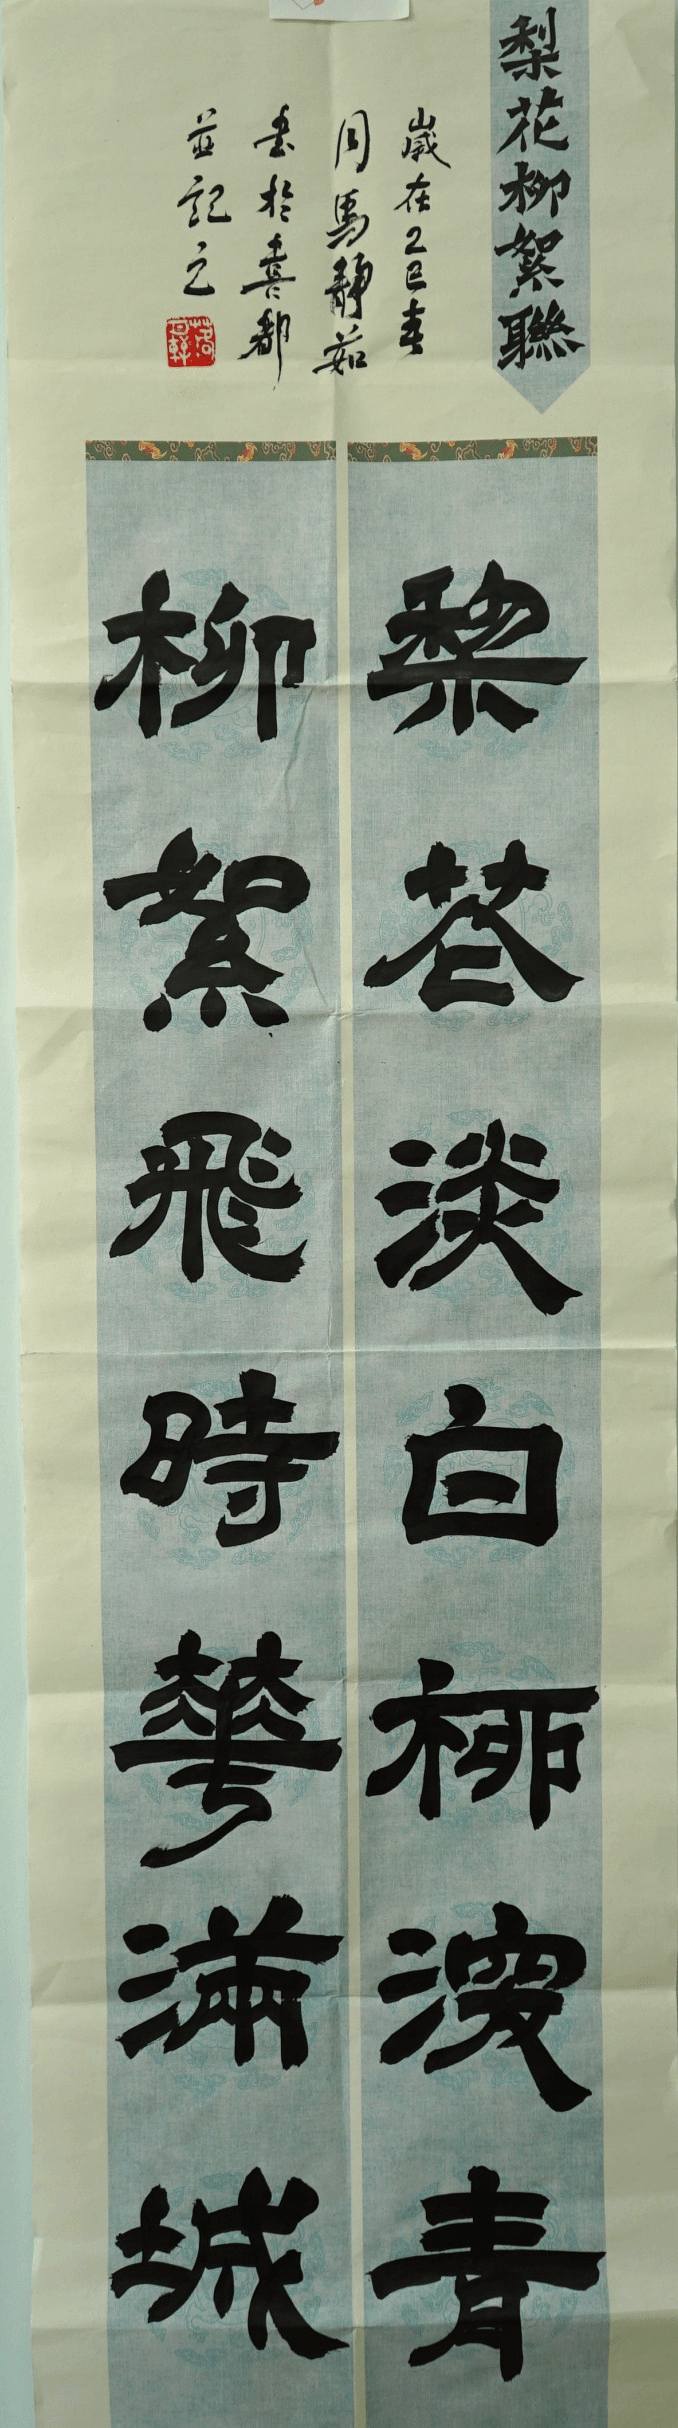 梨花柳絮聯
梨花淡白柳深青
柳絮飛時華滿城
歲在乙巳春
月馬靜茹
書於喜都
並記之